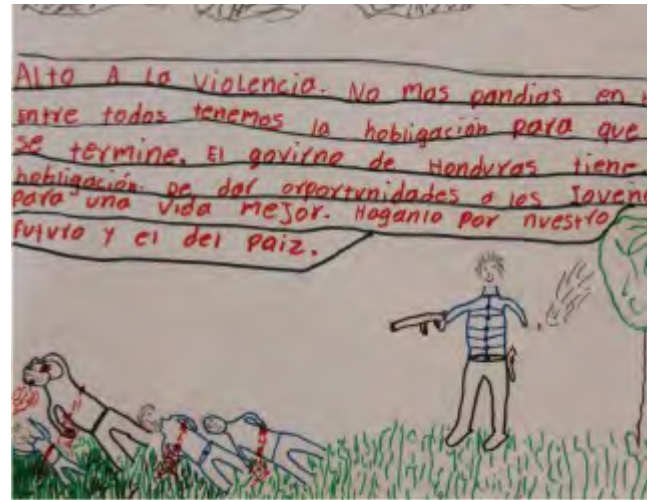 Alto A La violencia. No mas pandias en
Entre todos tenemos la hobligación para que
se termine. El govirno de Honduras tiene
hobligación. De dar orportunidades a los Jovene
para una vida mejor. Haganlo por nuestro
futuro y el del paiz.